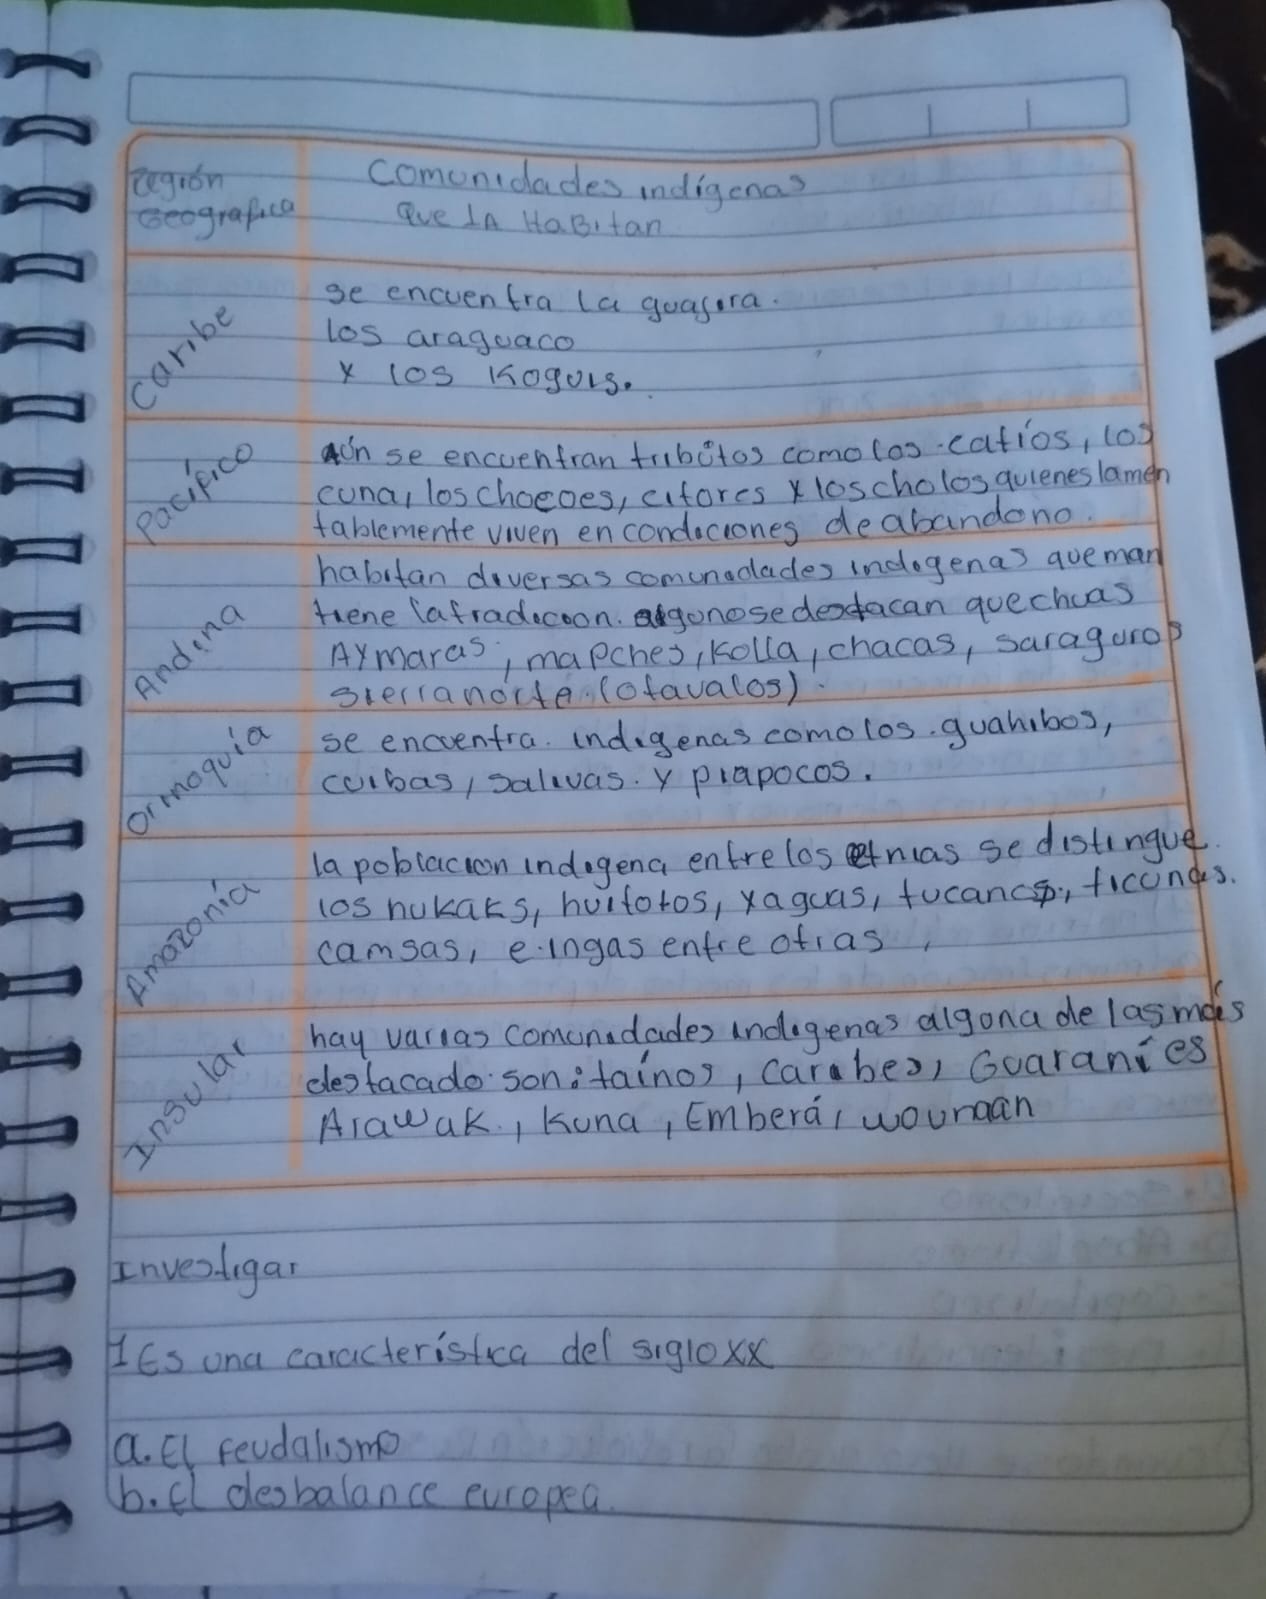 región
Geografica
Comunidades indígenas
Que LA HaBitan
Caribe
se encuentra la guajira.
los araguaco
y los Koguis.
Pacífico
Aún se encuentran tribútos como los catíos, los
cuna, los chocoes, citores y los cholos quienes lamen
tablemente viven en condiciones de abandono.
Andina
habitan diversas comunidades indigenas que man
tiene la tradicion. algonos e destacan quechuas
Aymaras, mapches, Kolla, chacas, saraguros
sierra norte (otavalos).
Orinoquía
se encuentra. indigenas como los guahibos,
cuibas, salivas. y piapocos.
Amazonía
la poblacion indigena entre los etnias se distingue.
los nukaks, huitotos, yaguas, tucanos, ticunas.
camsas, e ingas entre otras
Insular
hay varias comunidades indigenas algona de las más
destacado son: taínos, Caribes, Guaraníes
Arawak, Kuna, Emberá, wounaan
Investigar
1 Es una característica del siglo XX
a. El feudalismo
b. El desbalance europea.